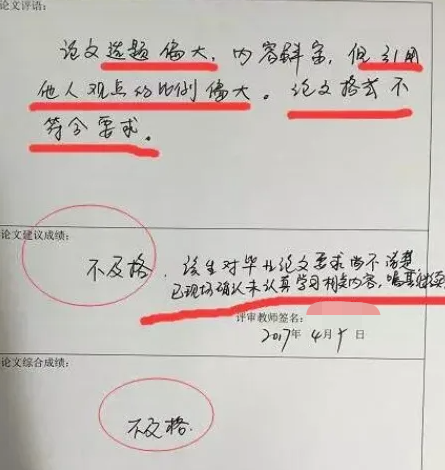 论文评语：
论文选题偏大，内容丰富，但引用
他人观点的比例偏大。论文格式不
符合要求。
论文建议成绩：
不及格，该生对毕业论文要求尚不清楚
已现场确认未认真学习相关内容，嘱其继续
评审教师签名：
2017年4月 日
论文综合成绩：
不及格.